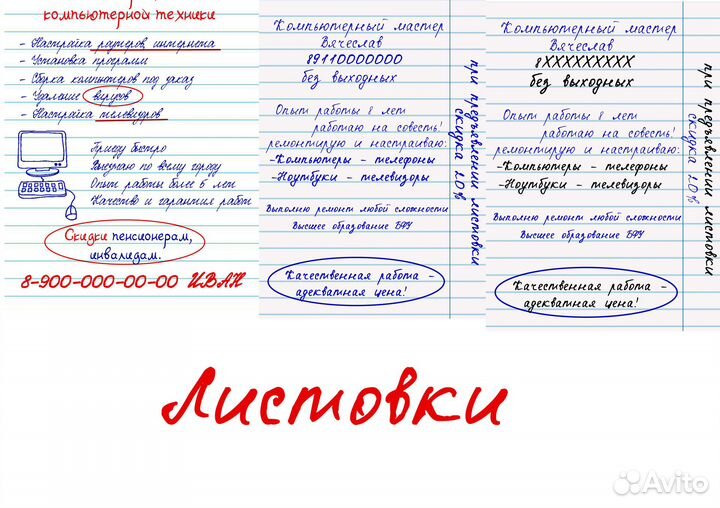 компьютерной техники
- Настройка роутеров, интернета
- Установка программ
- Сборка компьютеров под заказ
- Удаление вирусов
- Настройка телевизоров
Приеду быстро
Выезжаю по всему городу
Опыт работы более 5 лет
Качество и гарантия работ
Скидки пенсионерам,
инвалидам.
8-900-000-00-00 ИВАН
Компьютерный мастер
Вячеслав
89110000000
без выходных
Опыт работы 8 лет
работаю на совесть!
ремонтирую и настраиваю:
-Компьютеры - телефоны
-Ноутбуки - телевизоры
Выполню ремонт любой сложности
Высшее образование БФУ
Качественная работа -
адекватная цена!
при предъявлении листовки
скидка 20%
Компьютерный мастер
Вячеслав
8XXXXXXXXX
без выходных
Опыт работы 8 лет
работаю на совесть!
ремонтирую и настраиваю:
-Компьютеры - телефоны
-Ноутбуки - телевизоры
Выполню ремонт любой сложности
Высшее образование БФУ
Качественная работа -
адекватная цена!
при предъявлении листовки
скидка 20%
Листовки
Avito